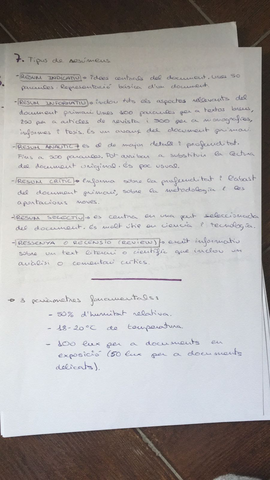 7. Tipus de resúmens
- RESUM INDICATIU → Idees centrals del document, unes 50
paraules. Representació bàsica d'un document.
- RESUM INFORMATIU → Inclou tots els aspectes rellevants del
document primari. Unes 200 paraules per a textos breus,
250 per a articles de revista i 300 per a monografies,
informes i tesis. És un mapa del document primari
- RESUM ANALÍTIC → És el de major detall i profunditat.
Fins a 500 paraules. Pot arribar a substituir la lectura
del document original. És poc usual.
- RESUM CRÍTIC → Informa sobre la profunditat i l'abast
del document primari, sobre la metodologia i les
aportacions noves.
- RESUM SELECTIU → es centra en una part seleccionada
del document. És molt útil en ciència i tecnologia.
- RESSENYA O RECENSIÓ (REVIEW) → escrit informatiu
sobre un text literari o científic que inclou un
anàlisi o comentari crític.
→ 3 paràmetres fonamentals:
- 50% d'humitat relativa
- 18-20°C de temperatura
- 100 lux per a documents en
exposició (50 lux per a documents
delicats).